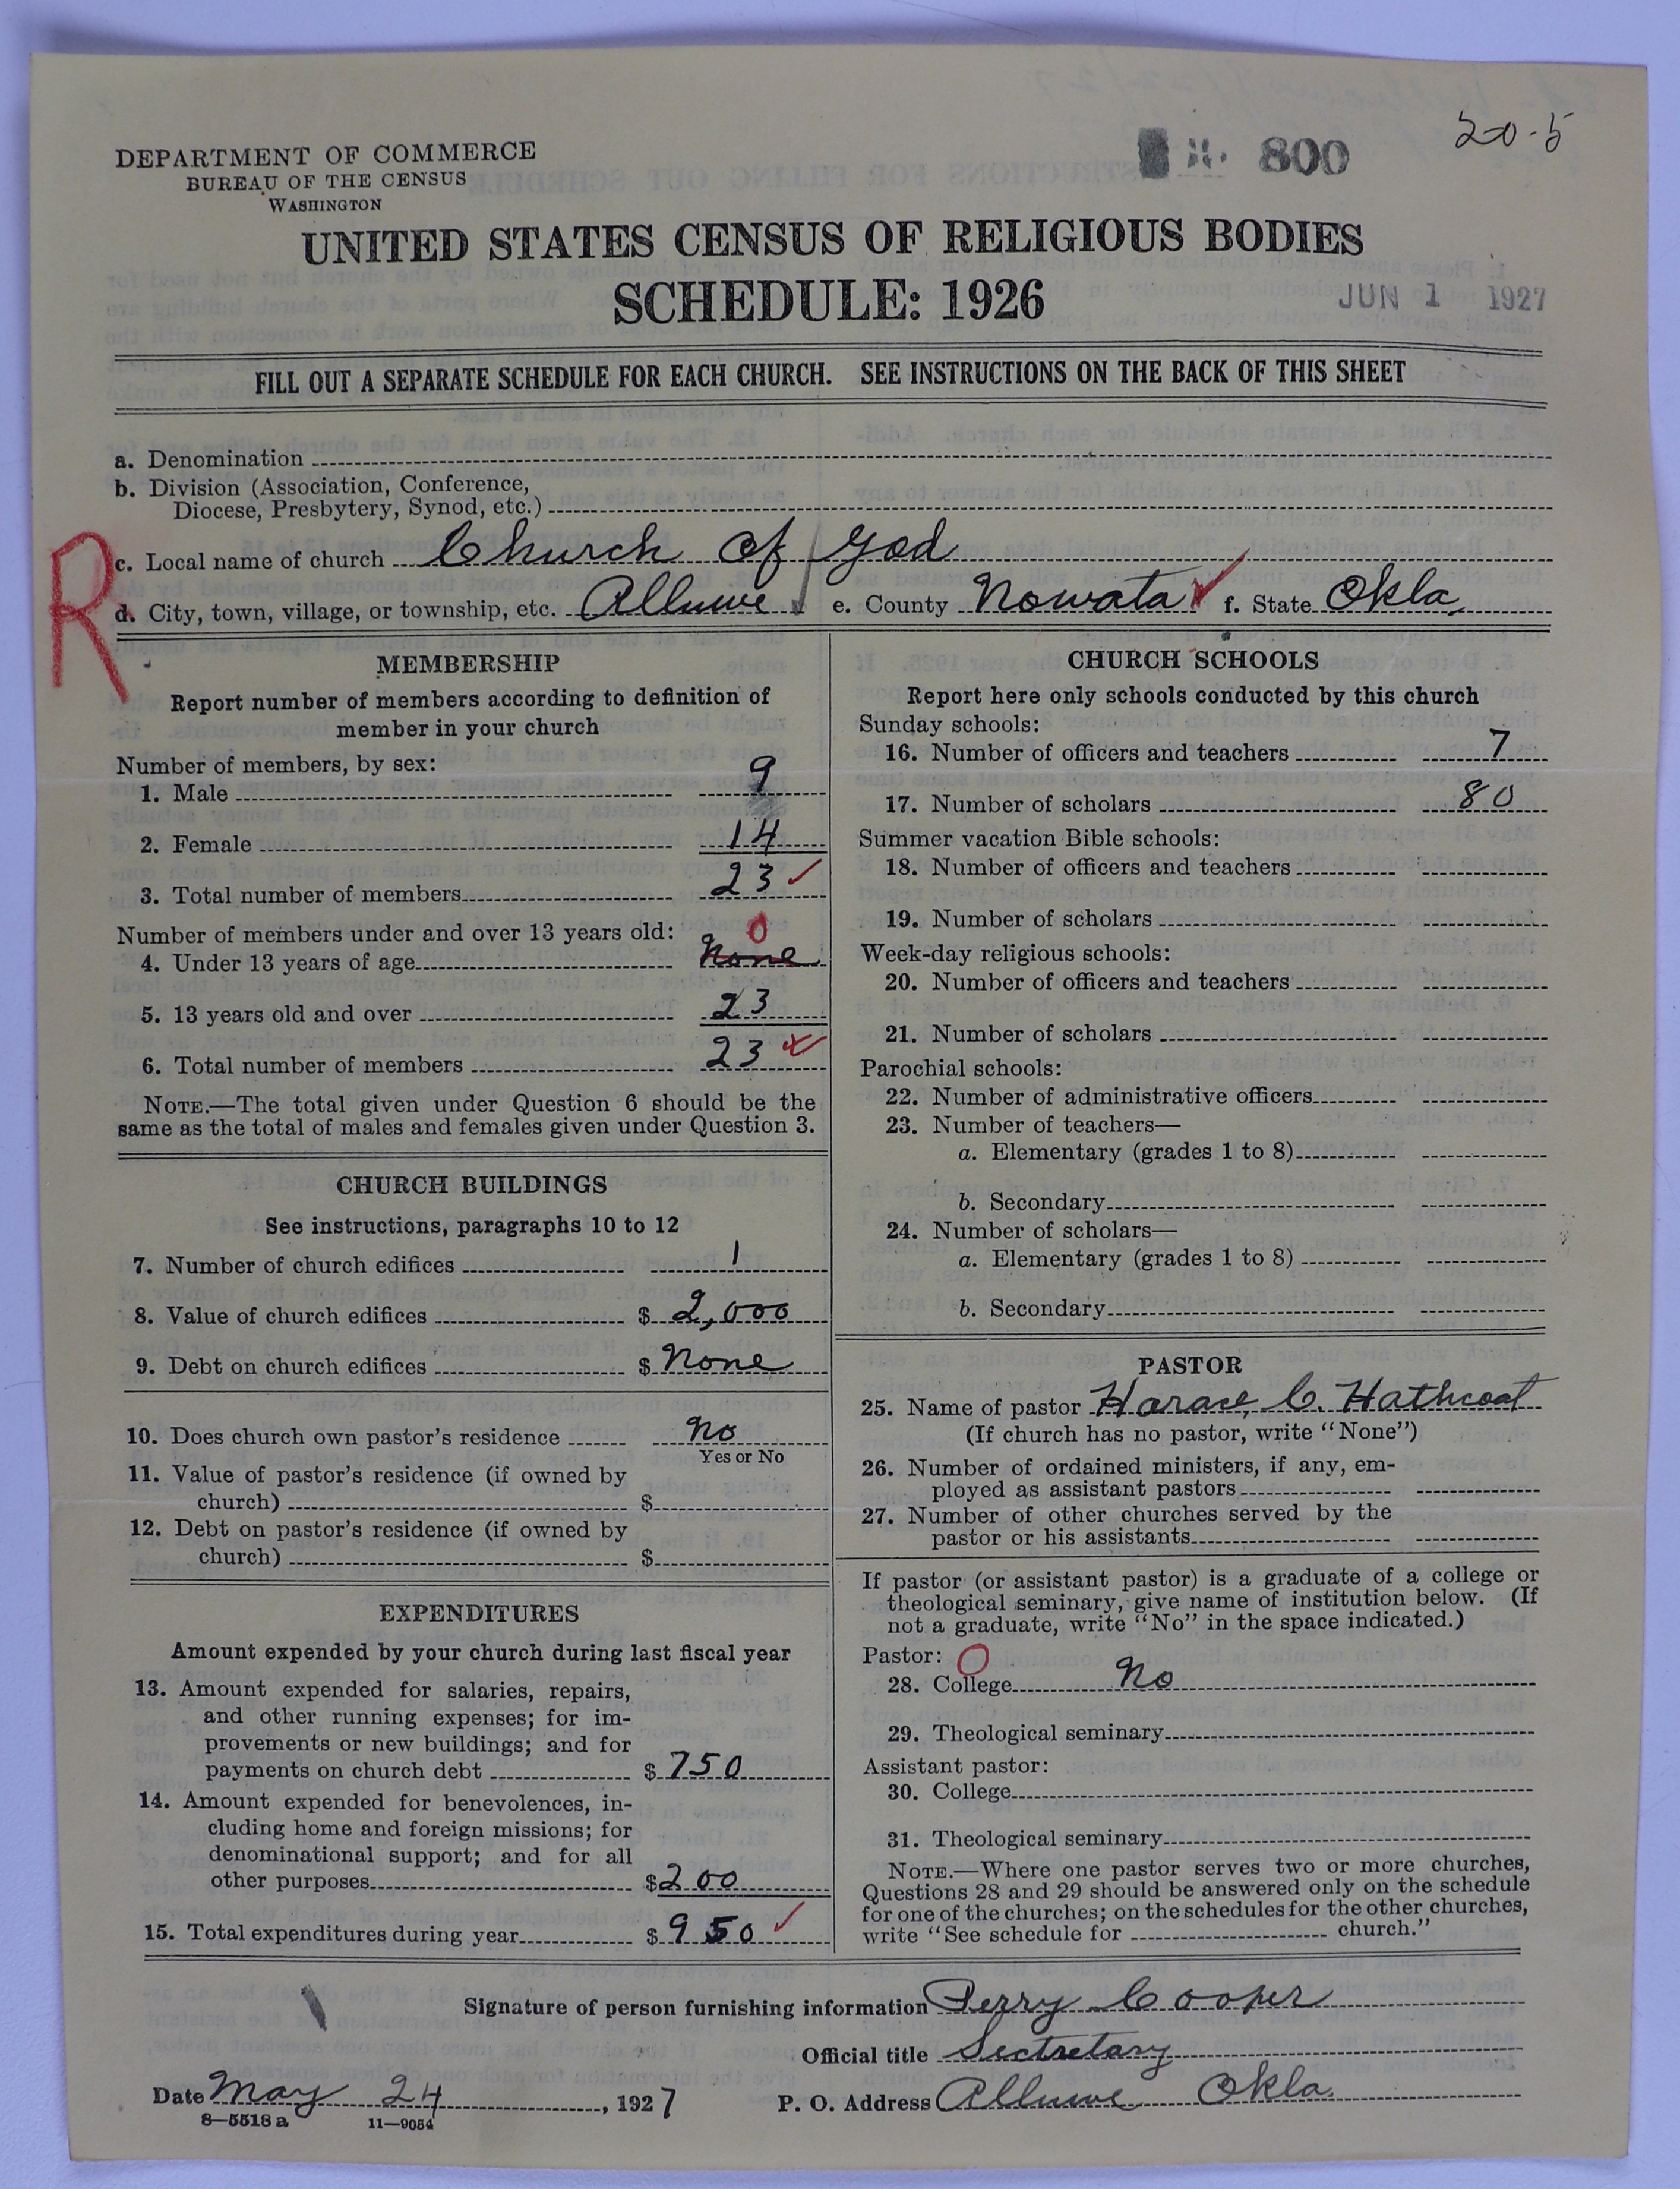 20-5
DEPARTMENT OF COMMERCE
BUREAU OF THE CENSUS
WASHINGTON
800
UNITED STATES CENSUS OF RELIGIOUS BODIES
SCHEDULE: 1926
JUN 1 1927
FILL OUT A SEPARATE SCHEDULE FOR EACH CHURCH. SEE INSTRUCTIONS ON THE BACK OF THIS SHEET
a. Denomination
b. Division (Association, Conference,
Diocese, Presbytery, Synod, etc.)
R
c. Local name of church Church of God
d. City, town, village, or township, etc. Alluwe e. County Nowata f. State Okla.
MEMBERSHIP
Report number of members according to definition of
member in your church
Number of members, by sex:
1. Male 9
2. Female 14
3. Total number of members 23
Number of members under and over 13 years old: 0
4. Under 13 years of age None
5. 13 years old and over 23
6. Total number of members 23
NOTE.—The total given under Question 6 should be the
same as the total of males and females given under Question 3.
CHURCH BUILDINGS
See instructions, paragraphs 10 to 12
7. Number of church edifices 1
8. Value of church edifices $ 2,000
9. Debt on church edifices $ None
10. Does church own pastor's residence No
Yes or No
11. Value of pastor's residence (if owned by
church) $
12. Debt on pastor's residence (if owned by
church) $
EXPENDITURES
Amount expended by your church during last fiscal year
13. Amount expended for salaries, repairs,
and other running expenses; for im-
provements or new buildings; and for
payments on church debt $ 750
14. Amount expended for benevolences, in-
cluding home and foreign missions; for
denominational support; and for all
other purposes $ 200
15. Total expenditures during year $ 950
CHURCH SCHOOLS
Report here only schools conducted by this church
Sunday schools:
16. Number of officers and teachers 7
17. Number of scholars 80
Summer vacation Bible schools:
18. Number of officers and teachers
19. Number of scholars
Week-day religious schools:
20. Number of officers and teachers
21. Number of scholars
Parochial schools:
22. Number of administrative officers
23. Number of teachers—
a. Elementary (grades 1 to 8)
b. Secondary
24. Number of scholars—
a. Elementary (grades 1 to 8)
b. Secondary
PASTOR
25. Name of pastor Harace C. Hathcoat
(If church has no pastor, write "None")
26. Number of ordained ministers, if any, em-
ployed as assistant pastors
27. Number of other churches served by the
pastor or his assistants
If pastor (or assistant pastor) is a graduate of a college or
theological seminary, give name of institution below. (If
not a graduate, write "No" in the space indicated.)
Pastor: 0
28. College No
29. Theological seminary
Assistant pastor:
30. College
31. Theological seminary
NOTE.—Where one pastor serves two or more churches,
Questions 28 and 29 should be answered only on the schedule
for one of the churches; on the schedules for the other churches,
write "See schedule for church."
Signature of person furnishing information Perry Cooper
Official title Sectretary
Date May 24, 1927 P. O. Address Alluwe Okla.
8—5518 a 11—9054